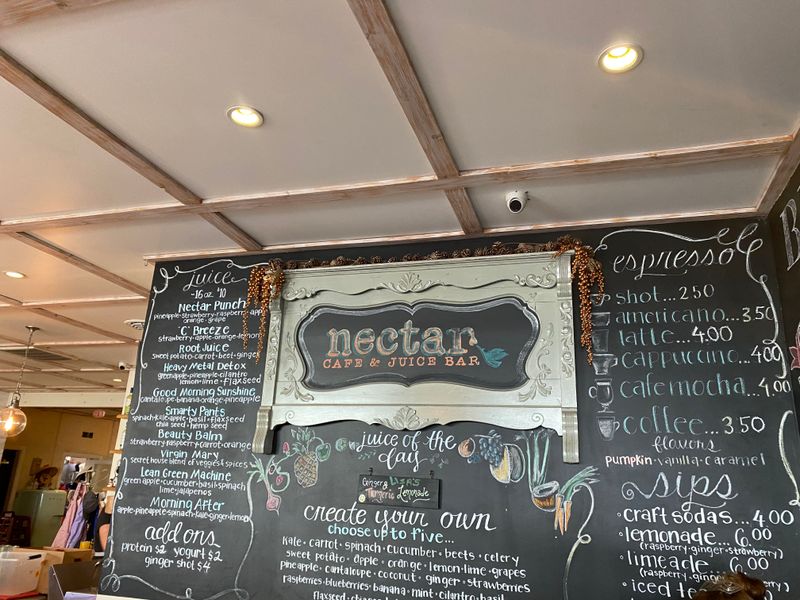 juice
-16 oz. $10
Nectar Punch
pineapple·strawberry·raspberry·apple
orange·grape
"C" Breeze
strawberry·pineapple·apple·orange·lemon
Root Juice
sweet potato·carrot·beet·ginger
Heavy Metal Detox
greenapple·pineapple·cilantro
lemon·lime·flaxseed
Good Morning Sunshine
cantaloupe·banana·orange·pineapple
Smarty Pants
spinach·kale·apple·basil·flaxseed
chia seed·hemp seed
Beauty Balm
strawberry·raspberry·carrot·orange
Virgin Mary
secret house blend of veggies & spices
Lean Green Machine
green apple·cucumber·basil·spinach
lime·jalapenos
Morning After
apple·pineapple·spinach·kale·ginger·lemon
add ons
protein $2 yogurt $2
ginger shot $4
nectar
CAFE & JUICE BAR
juice of the
day
Ginger
Turmeric Lemonade
create your own
choose up to five...
kale·carrot·spinach·cucumber·beets·celery
sweet potato·apple·orange·lemon·lime·grapes
pineapple·cantaloupe·coconut·ginger·strawberries
raspberries·blueberries·banana·mint·cilantro·basil
flaxseed
espresso
shot...2.50
americano...3.50
latte...4.00
cappuccino...4.00
cafe mocha...4.00
coffee...3.50
flavors
pumpkin·vanilla·caramel
sips
·craft sodas...4.00
·lemonade...6.00
(raspberry·ginger·strawberry)
·limeade...6.00
(raspberry·ginger
·iced te
B